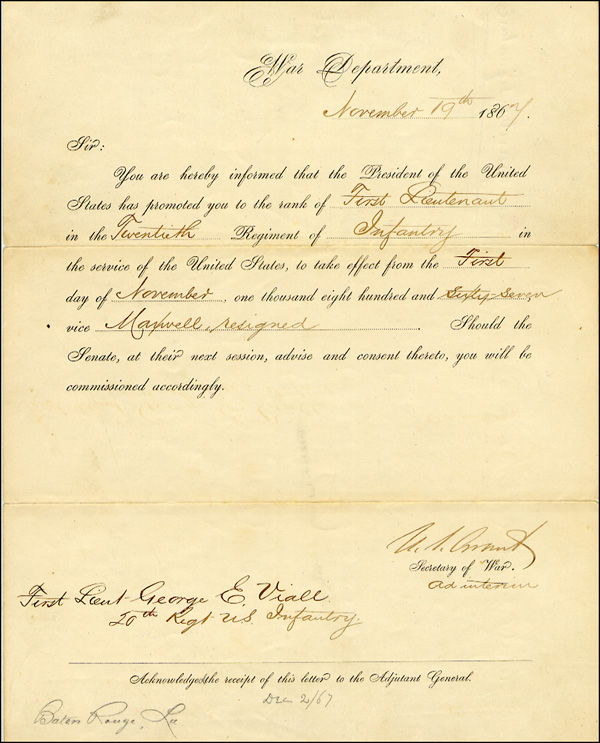 War Department,
November 19th 1867.
Sir:
You are hereby informed that the President of the United
States has promoted you to the rank of First Lieutenant
in the Twentieth Regiment of Infantry in
the service of the United States, to take effect from the First
day of November, one thousand eight hundred and Sixty-Seven
vice Maxwell, resigned. Should the
Senate, at their next session, advise and consent thereto, you will be
commissioned accordingly.
U. S. Grant
Secretary of War.
ad interim
First Lieut George E. Viall.
20th Regt U.S. Infantry.
Acknowledge the receipt of this letter to the Adjutant General.
Dec 2/67
Baton Rouge, La